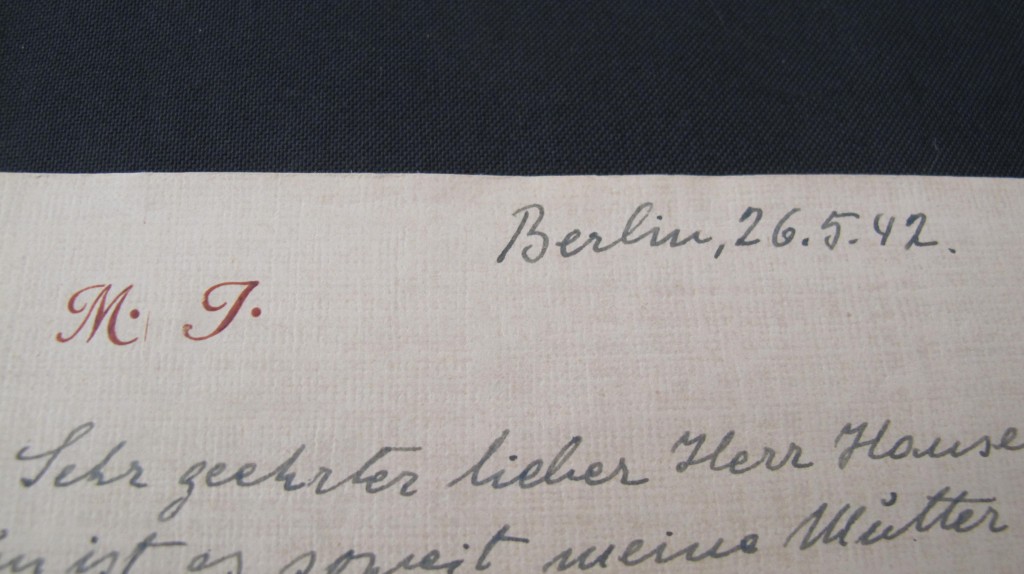 Berlin, 26.5.42.
M. J.
Sehr geehrter lieber Herr Hause
ist es soweit meine Mutter